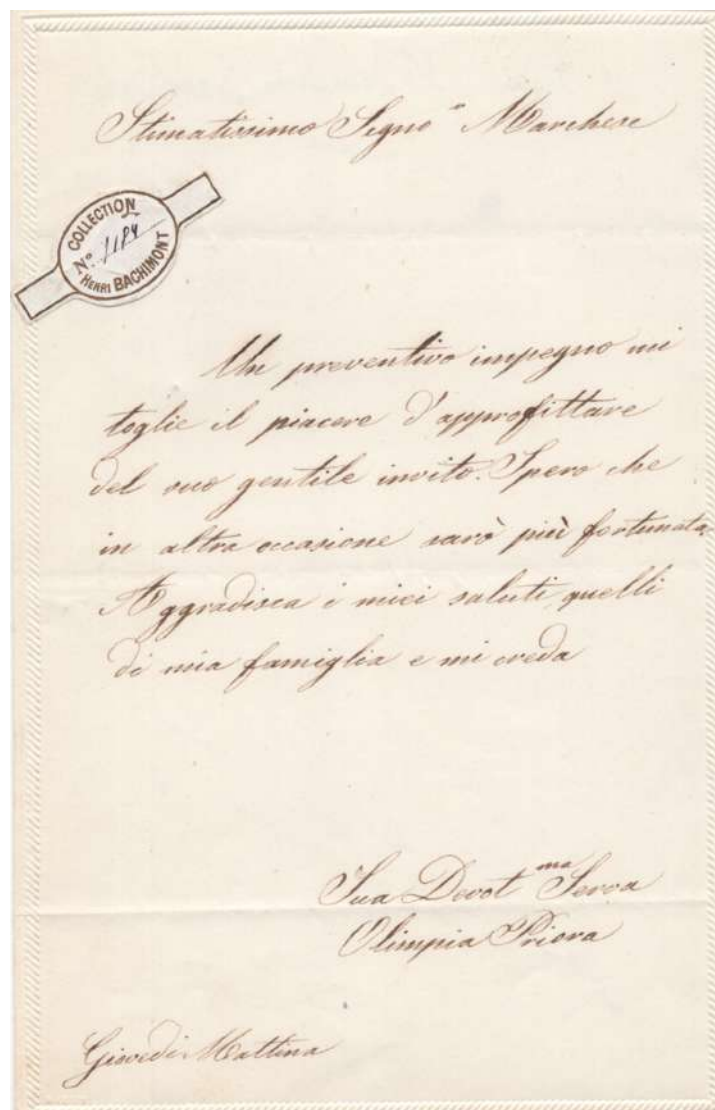 Stimatissimo Signo^r Marchese
COLLECTION
No. 1184
HENRI BACHIMONT
Un preventivo impegno mi
toglie il piacere d'approfittare
del suo gentile invito. Spero che
in altra occasione sarò più fortunata.
Aggradisca i miei saluti, quelli
di mia famiglia e mi creda
Sua Devot^ma Serva
Olimpia Priora
Giovedi Mattina